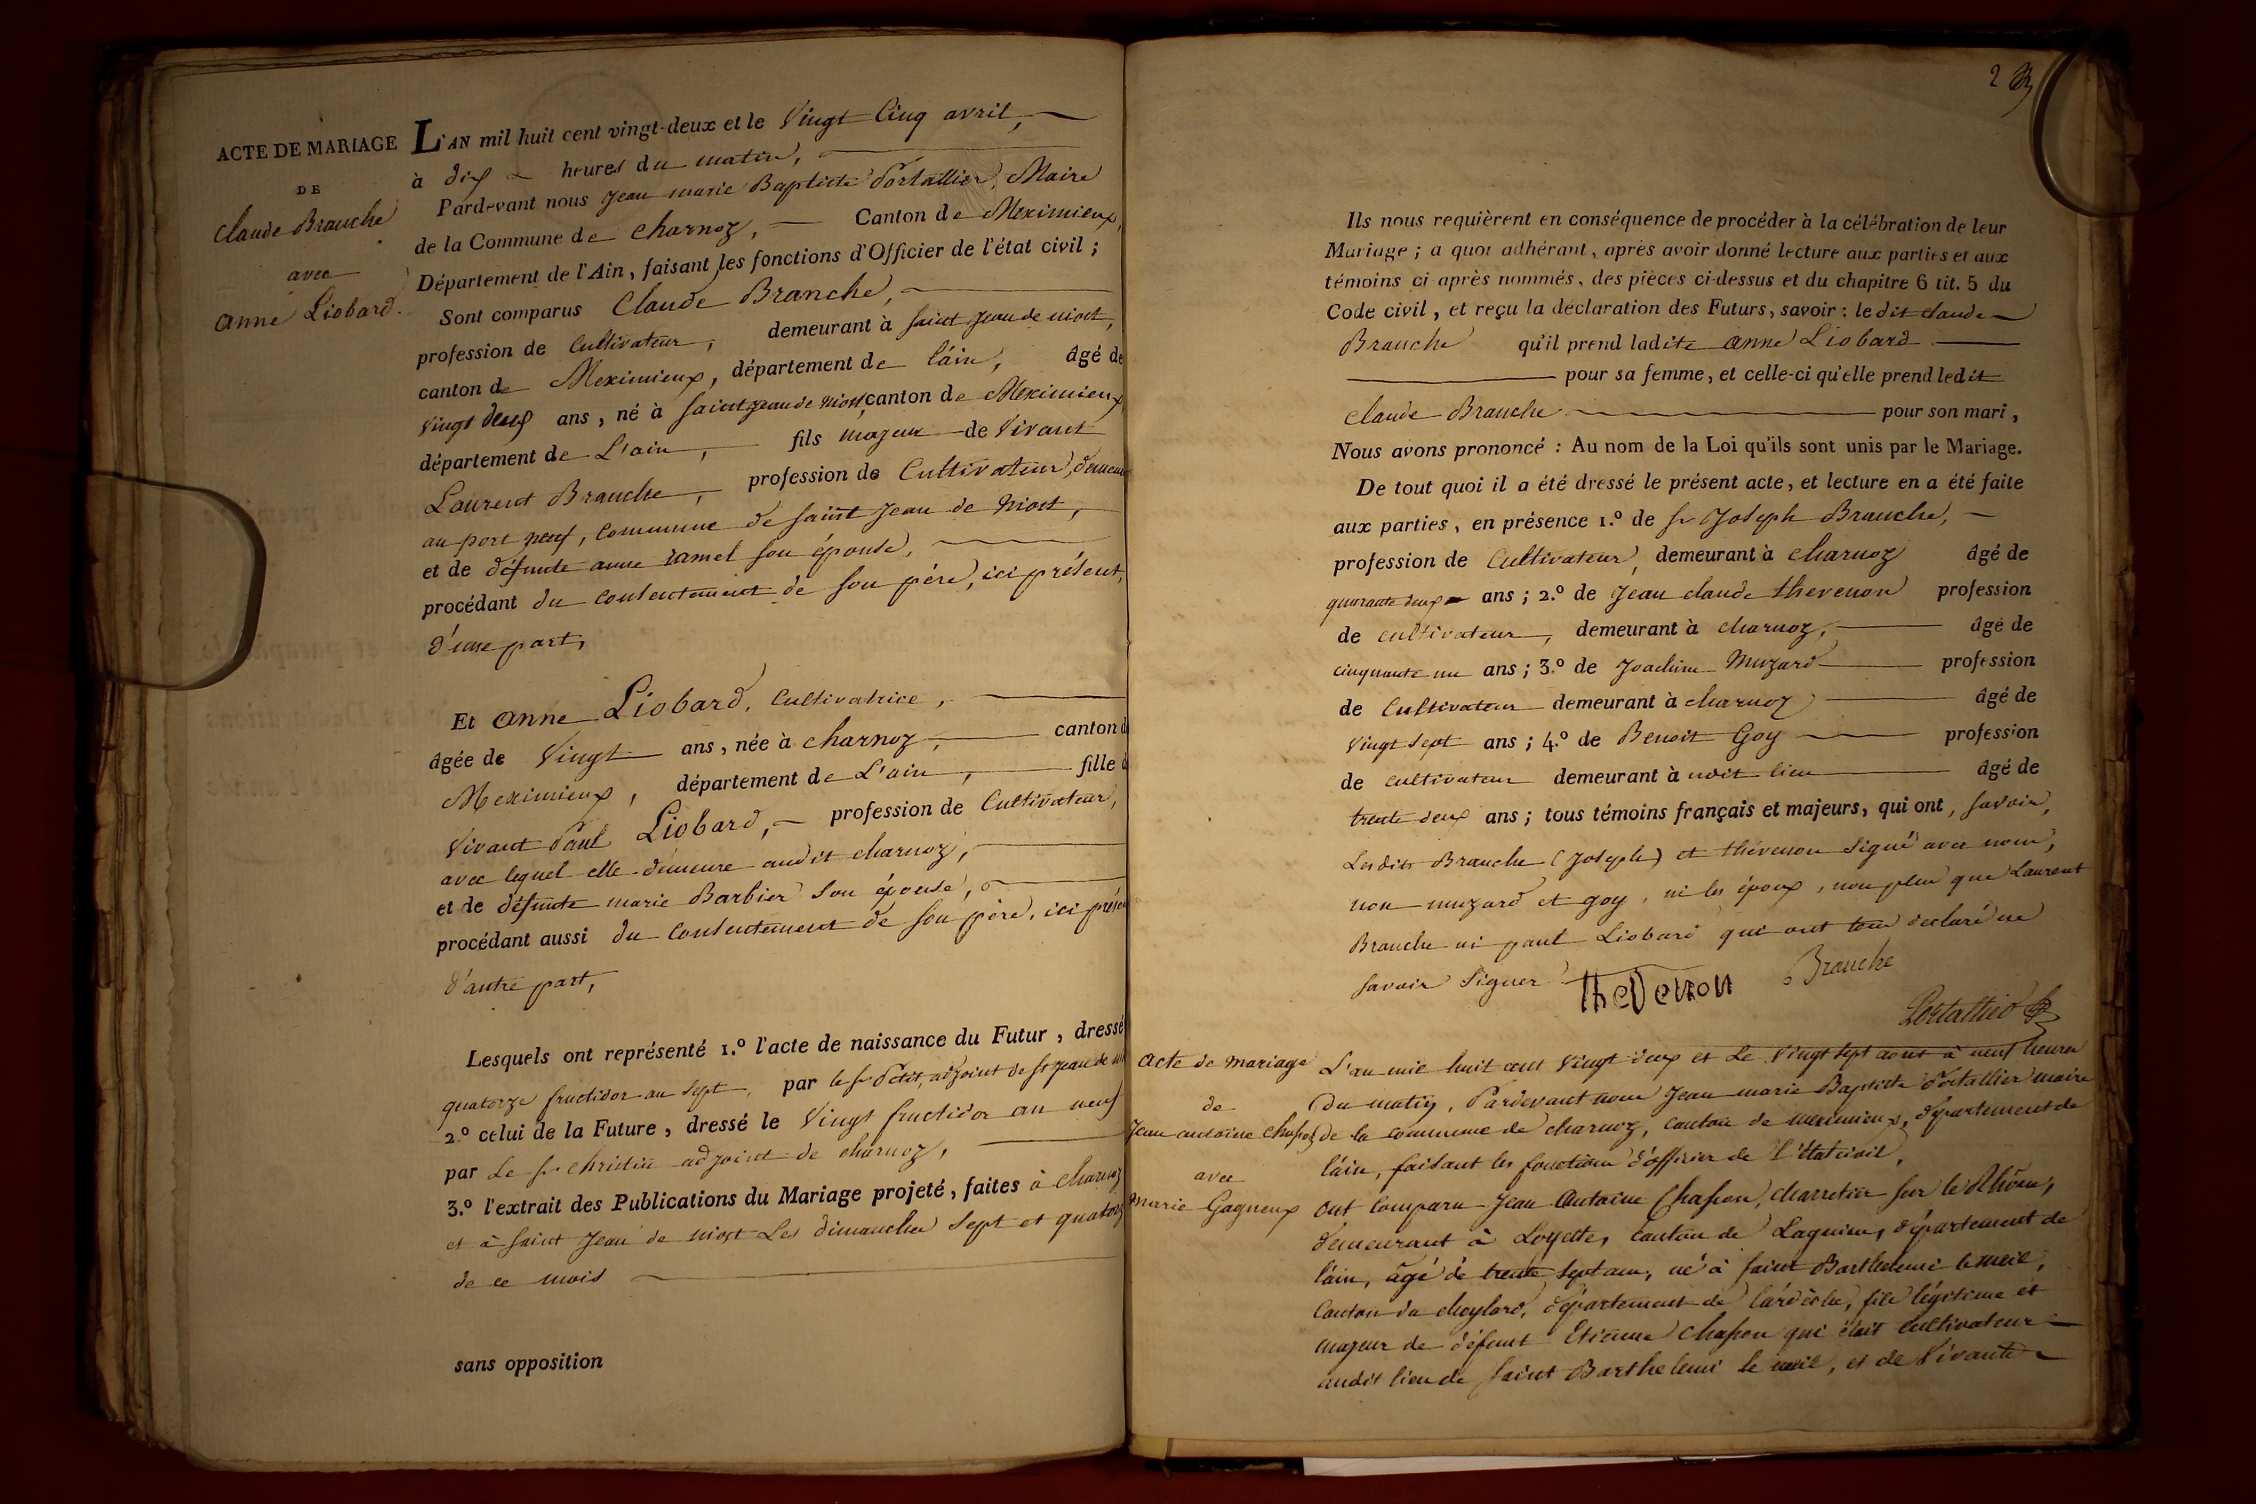 ACTE DE MARIAGE
DE
Claude Branche
avec
anne Liobard.
L'AN mil huit cent vingt-deux et le Vingt Cinq avril,
à dix heures du matin,
Pardevant nous Jean marie Baptiste Portallier, Maire
de la Commune de Charnoz, Canton de Meximieux,
Département de l'Ain, faisant les fonctions d'Officier de l'état civil ;
Sont comparus Claude Branche,
profession de Cultivateur, demeurant à Saint Jean de niost,
canton de Meximieux, département de l'áin, âgé de
Vingt deux ans, né à Saint Jean de Niost, canton de Meximieux
département de L'ain, fils majeur de Vivant
Laurent Branche, profession de Cultivateur, demeu
au port neuf, Commune de Saint Jean de Niost,
et de défunte anne ramel son épouse,
procédant du Consentement de son pére, ici présent,
d'une part,
Et anne Liobard, Cultivatrice,
âgée de Vingt ans, née à Charnoz, canton d
Meximieux, département de L'ain, fille d
Vivant Paul Liobard, profession de Cultivateur,
avec lequel elle demeure audit Charnoz,
et de défunte marie Barbier son épouse,
procédant aussi du Consentement de son père, ici présen
d'autre part,
Lesquels ont représenté 1.º l'acte de naissance du Futur, dressé
quatorze fructidor an Sept, par le Sr Petit, adjoint de St Jean de
2.º celui de la Future, dressé le Vingt fructidor an neuf
par Le Sr Christin adjoint de Charnoz,
3.º l'extrait des Publications du Mariage projeté, faites à Charnoz
et à Saint Jean de niost Les dimanches Sept et quatorz
de ce mois
sans opposition
2
Ils nous requièrent en conséquence de procéder à la célébration de leur
Mariage ; a quoi adhérant, après avoir donné lecture aux parties et aux
témoins ci après nommés, des pièces ci-dessus et du chapitre 6 tit. 5 du
Code civil, et reçu la déclaration des Futurs, savoir : le dit Claude
Branche qu'il prend ladite anne Liobard
pour sa femme, et celle-ci qu'elle prend ledit
Claude Branche pour son mari,
Nous avons prononcé : Au nom de la Loi qu'ils sont unis par le Mariage.
De tout quoi il a été dressé le présent acte, et lecture en a été faite
aux parties, en présence 1.º de Sr Joseph Branche,
profession de Cultivateur, demeurant à Charnoz âgé de
quarante deux ans ; 2.º de Jean claude thevenon profession
de cultivateur, demeurant à Charnoz, âgé de
cinquante un ans ; 3.º de Joachim Muzard profession
de Cultivateur demeurant à Charnoz âgé de
Vingt Sept ans ; 4.º de Benoit Goy profession
de cultivateur demeurant à udit lieu âgé de
trente deux ans ; tous témoins français et majeurs, qui ont, savoir,
Lesdits Branche (Joseph) et thévenon Signé avec nous,
non muzard et goy, ni les époux, non plus que Laurent
Branche ni paul Liobard qui ont tous declaré ne
Savoir Signer
theVenon
Branche
Portallier
Acte de mariage
de
Jean antoine Chapon
avec
Marie Gagneux
L'an mil huit cent Vingt deux et Le Vingt Sept aout à neuf heures
du matin, Pardevant nous Jean marie Baptiste Portallier maire
de la commune de charnoz, canton de meximieux, département de
l'áin, faisant les fonctions d'officier de l'état civil,
ont Comparu Jean Antoine Chapon, charretier sur le Rhône,
demeurant à Loyette, canton de Lagnieu, département de
l'áin, âgé de trente Sept ans, né à Saint Barthelemi le meil,
Canton du cheylard, département de l'ardéche, fils légitime et
majeur de défunt Etienne Chapon qui était cultivateur
audit lieu de Saint Barthelemi le meil, et de Vivante